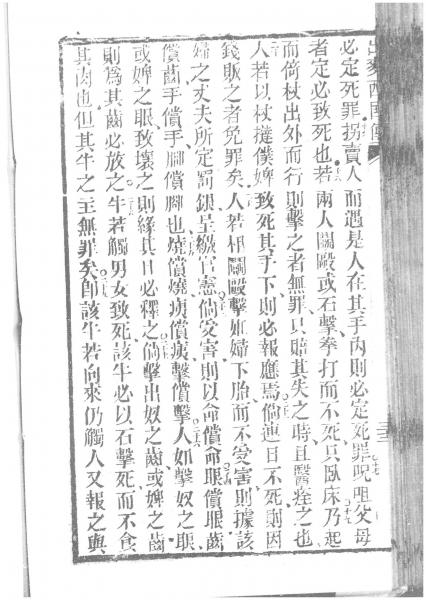 出麥西國傳
必定死罪拐賣人而遇是人在其手內則必定死罪呪咀父母
者定必致死也若兩人鬭毆或石擊拳打而不死只臥床乃起
而倚杖出外而行則擊之者無罪只賠其失之時且醫痊之也
人若以杖撻僕婢致死其手下則必報應焉倘連日不死則因
錢販之者免罪矣人若相鬭毆擊妊婦下胎而不受害則據該
婦之丈夫所定罰銀呈繳官憲倘受害則以命償命眼償眼齒
償齒手償手腳償腳也燒償燒痍償痍擊償擊人如擊奴之眼
或婢之眼致壞之則緣其目必釋之倘擊出奴之齒或婢之齒
則為其齒必放之牛若觸男女致死該牛必以石擊死而不食
其肉也但其牛之主無罪矣卽該牛若向來仍觸人又報之與